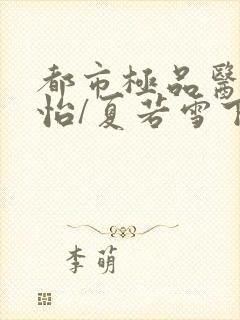 都市極品醫
怡/夏若雪
李萌